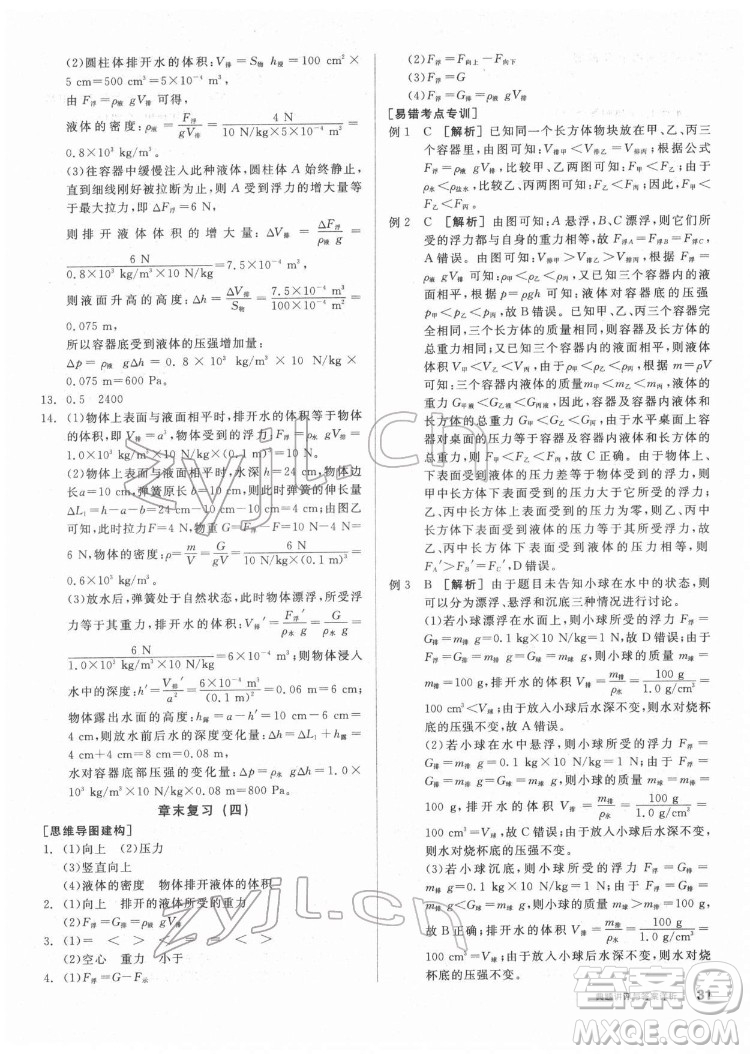 (2)圆柱体排开水的体积:V排=S物 h浸=100 cm²×
5 cm=500 cm³=5×10⁻⁴ m³,
由 F浮=ρ液 gV排 可得,
液体的密度:ρ液=F浮/gV排=4 N/10 N/kg×5×10⁻⁴ m³=
0.8×10³ kg/m³。
(3)往容器中缓慢注入此种液体,而圆柱体 A 始终静止,
直到细线刚好被拉断为止,则圆柱体 A 受到浮力的增大量等于
最大拉力,即 ΔF浮=6 N,
则排开液体体积的增大量:ΔV排=ΔF浮/ρ液 g=
6 N/0.8×10³ kg/m³×10 N/kg=7.5×10⁻⁴ m³,
则液面升高的高度:Δh=ΔV排/S物=7.5×10⁻⁴ m³/100×10⁻⁴ m²=
0.075 m,
所以容器底受到液体的压强增加量:
Δp=ρ液 gΔh=0.8×10³ kg/m³×10 N/kg×
0.075 m=600 Pa。
13. 0.5 2400
14. (1)物体上表面与液面相平时,排开水的体积等于物体
的体积,即 V排=a³,物体受到的浮力 F浮=ρ水 gV排=
1.0×10³ kg/m³×10 N/kg×(0.1 m)³=10 N。
(2)物体上表面与液面相平时,水深 H=24 cm,物体边
长 a=10 cm,弹簧原长=10 cm,此时弹簧的伸长量
ΔL₁=h-a-L₀=24 cm-10 cm-10 cm=4 cm,由图乙
可知,此时拉力F=4 N,物重 G=F浮-F=10 N-4 N=
6 N,物体的密度:ρ=m/V=G/gV=6 N/10 N/kg×(0.1 m)³=
0.6×10³ kg/m³。
(3)放水后,弹簧处于自然状态,此时物体漂浮,所受浮
力等于其重力,排开水的体积:V排′=F浮′/ρ水 g=G/ρ水 g=
6 N/1.0×10³ kg/m³×10 N/kg=6×10⁻⁴ m³,则物体浸入
水中的深度:h′=V排′/a²=6×10⁻⁴ m³/(0.1 m)²=0.06 m=6 cm,
物体露出水面的高度:h露=a-h′=10 cm-6 cm=
4 cm,则放水前后水的深度变化量:Δh=ΔL₁+h露=
4 cm+4 cm=8 cm=0.08 m,
水对容器底部压强的变化量:Δp=ρ水 gΔh=1.0×
10³ kg/m³×10 N/kg×0.08 m=800 Pa。
章末复习(四)
[思维导图建构]
1. (1)向上 (2)压力
(3)竖直向上
(4)液体的密度 物体排开液体的体积
2. (1)向上 排开的液体所受的重力
(2)F浮=G排=ρ液 gV排
3. (1)= < > < > = > <
(2)空心 重力 小于
4. (1)F浮=G-F示
(2)F浮=F向上-F向下
(3)F浮=G
(4)F浮=ρ液 gV排
[易错考点专训]
例 1 C [解析] 已知同一个长方体物块放在甲、乙、丙三
个容器里,由图知,V甲排<V乙排=V丙排;根据公式
F浮=ρ液 gV排,比较甲、乙两图可知:F甲<F乙;由于
ρ水<ρ盐水,比较乙、丙两图可知:F乙<F丙;所以浮力
的大小关系为F甲<F乙<F丙。
例 2 C [解析] 由图可知:A 悬浮、B 漂浮、C 漂浮,它们所
受的浮力都与自身的重力相等,故 F浮A=F浮B=F浮C,
故 A 错误。由图可知,V排甲>V排乙>V排丙,由 F浮=
ρ液 gV排 可知:ρ甲<ρ乙<ρ丙,三个容器内的液
面相平,根据 p=ρgh 可知,液体对容器底的压强
p甲<p乙<p丙,故 B 错误。已知三个容器完全
相同,三个长方体的质量相同,且三个长方体放入
容器后,三个容器的液面相平,由图可知,液体体积
V甲<V乙<V丙,又因为 ρ甲<ρ乙<ρ丙,由于 m=ρV
可知:G甲液<G乙液<G丙液,所以液体和长方体
的总重力 G甲总<G乙总<G丙总,由于水平桌面上容
器对桌面的压力等于容器的重力和液体、长方体的
总重力之和,故 C 正确。由于物体上、
下表面受到液体的压力差等于物体受到的浮力,则
甲中长方体下表面受到的压力大于它所受浮力,
乙中长方体下表面受到的压力等于它所受浮力,
丙中长方体下表面受到的压力等于它所受浮力,则
FA′>FB′=FC′,D 错误。
例 3 B [解析] 由于题目未告知小球在水中的状态,则
可以分为漂浮、悬浮和沉底三种情况进行讨论。
(1)若小球漂浮在水面上,则小球所受的浮力 F浮=
G排=m排 g=0.1 kg×10 N/kg=1 N=G球=m球 g,即
m排=m球=100 g,排开水的体积 V排=m排/ρ水=100 g/1.0 g/cm³=
100 cm³<V球;由于放入小球后水深不变,则水对烧杯
底的压强不变,故 A 错误。
(2)若小球在水中悬浮,则小球所受的浮力 F浮=
G排=m排 g=0.1 kg×10 N/kg=1 N=G球=m球 g,即
m排=m球=100 g,排开水的体积 V排=m排/ρ水=100 g/1.0 g/cm³=
100 cm³=V球,故 C 错误;由于放入小球后水深不变,
则水对烧杯底的压强不变,故 D 错误。
(3)若小球沉底,则小球所受的浮力 F浮=G排=m排 g
=0.1 kg×10 N/kg=1 N<G球=m球 g,即 m排=
100 g<m球,排开水的体积 V排=m排/ρ水=100 g/1.0 g/cm³=
100 cm³=V球;由于放入小球后水深不变,则水对烧
杯底的压强不变。
31
zyjl.cn
zyjl.cn
答案圈
MXQE.COM